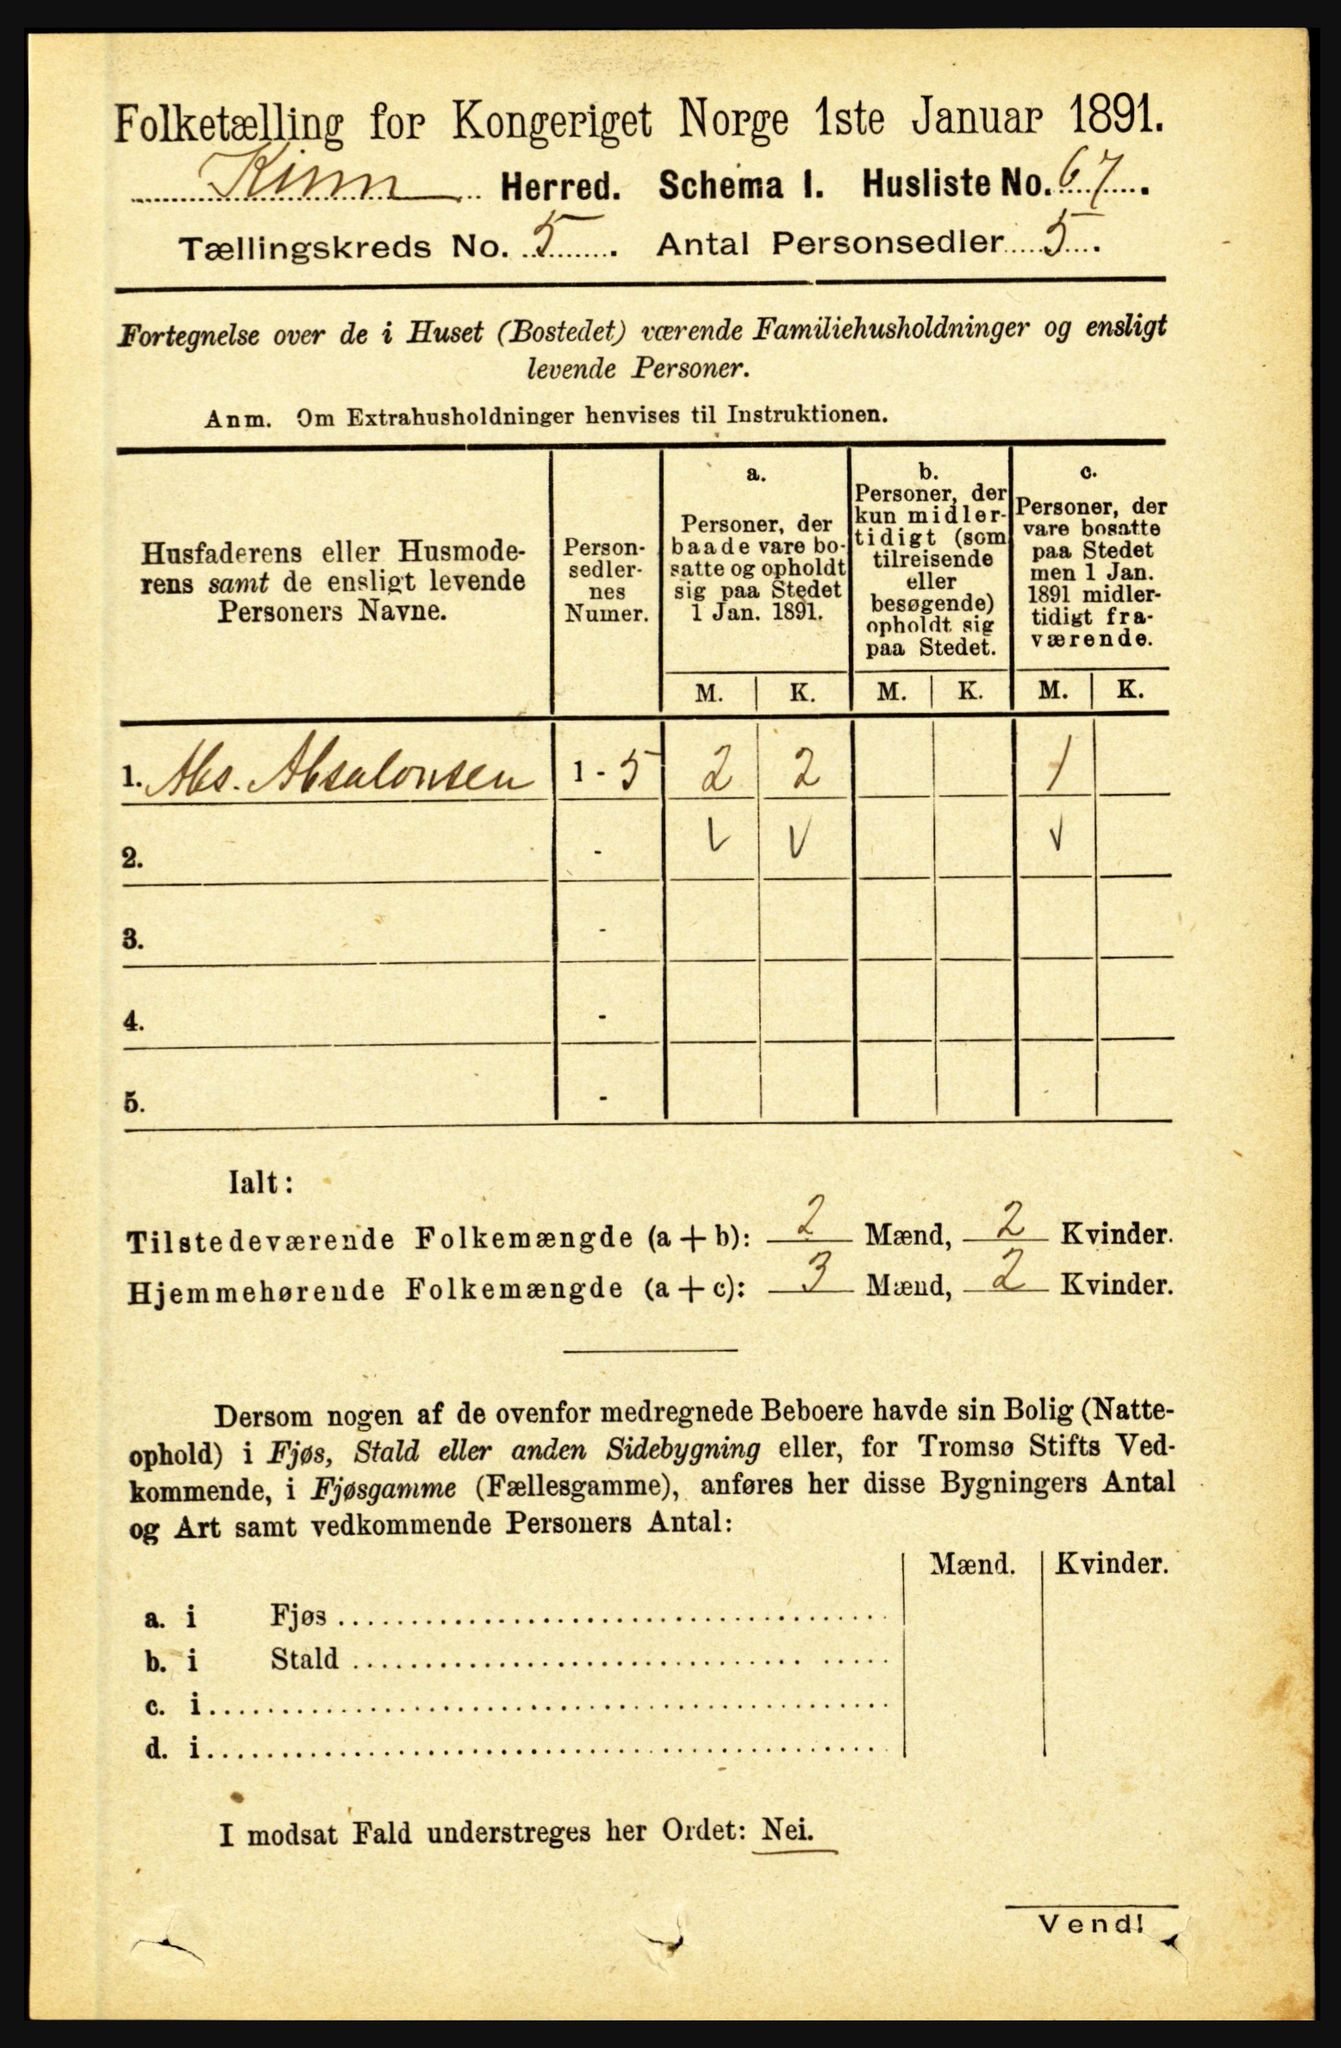 Folketælling for Kongeriget Norge 1ste Januar 1891.
Kinn Herred. Schema I. Husliste No. 67.
Tællingskreds No. 5. Antal Personsedler 5.
Fortegnelse over de i Huset (Bostedet) værende Familiehusholdninger og ensligt
levende Personer.
Anm. Om Extrahusholdninger henvises til Instruktionen.
Husfaderens eller Husmode-
rens samt de ensligt levende
Personers Navne.
Person-
sedler-
nes
Numer.
a.
Personer, der
baade vare bo-
satte og opholdt
sig paa Stedet
1 Jan. 1891.
b.
Personer, der
kun midler-
tidigt (som
tilreisende
eller
besøgende)
opholdt sig
paa Stedet.
c.
Personer, der
vare bosatte
paa Stedet
men 1 Jan.
1891 midler-
tidigt fra-
værende.
M. K. M. K. M. K.
1. Abs. Absalonsen 1 - 5 2 2 1
2. - V V V
3. -
4. -
5. -
Ialt:
Tilstedeværende Folkemængde (a + b): 2 Mænd, 2 Kvinder.
Hjemmehørende Folkemængde (a + c): 3 Mænd, 2 Kvinder.
Dersom nogen af de ovenfor medregnede Beboere havde sin Bolig (Natte-
ophold) i Fjøs, Stald eller anden Sidebygning eller, for Tromsø Stifts Ved-
kommende, i Fjøsgamme (Fællesgamme), anføres her disse Bygningers Antal
og Art samt vedkommende Personers Antal:
Mænd. Kvinder.
a. i Fjøs
b. i Stald
c. i
d. i
I modsat Fald understreges her Ordet: Nei.
Vend!